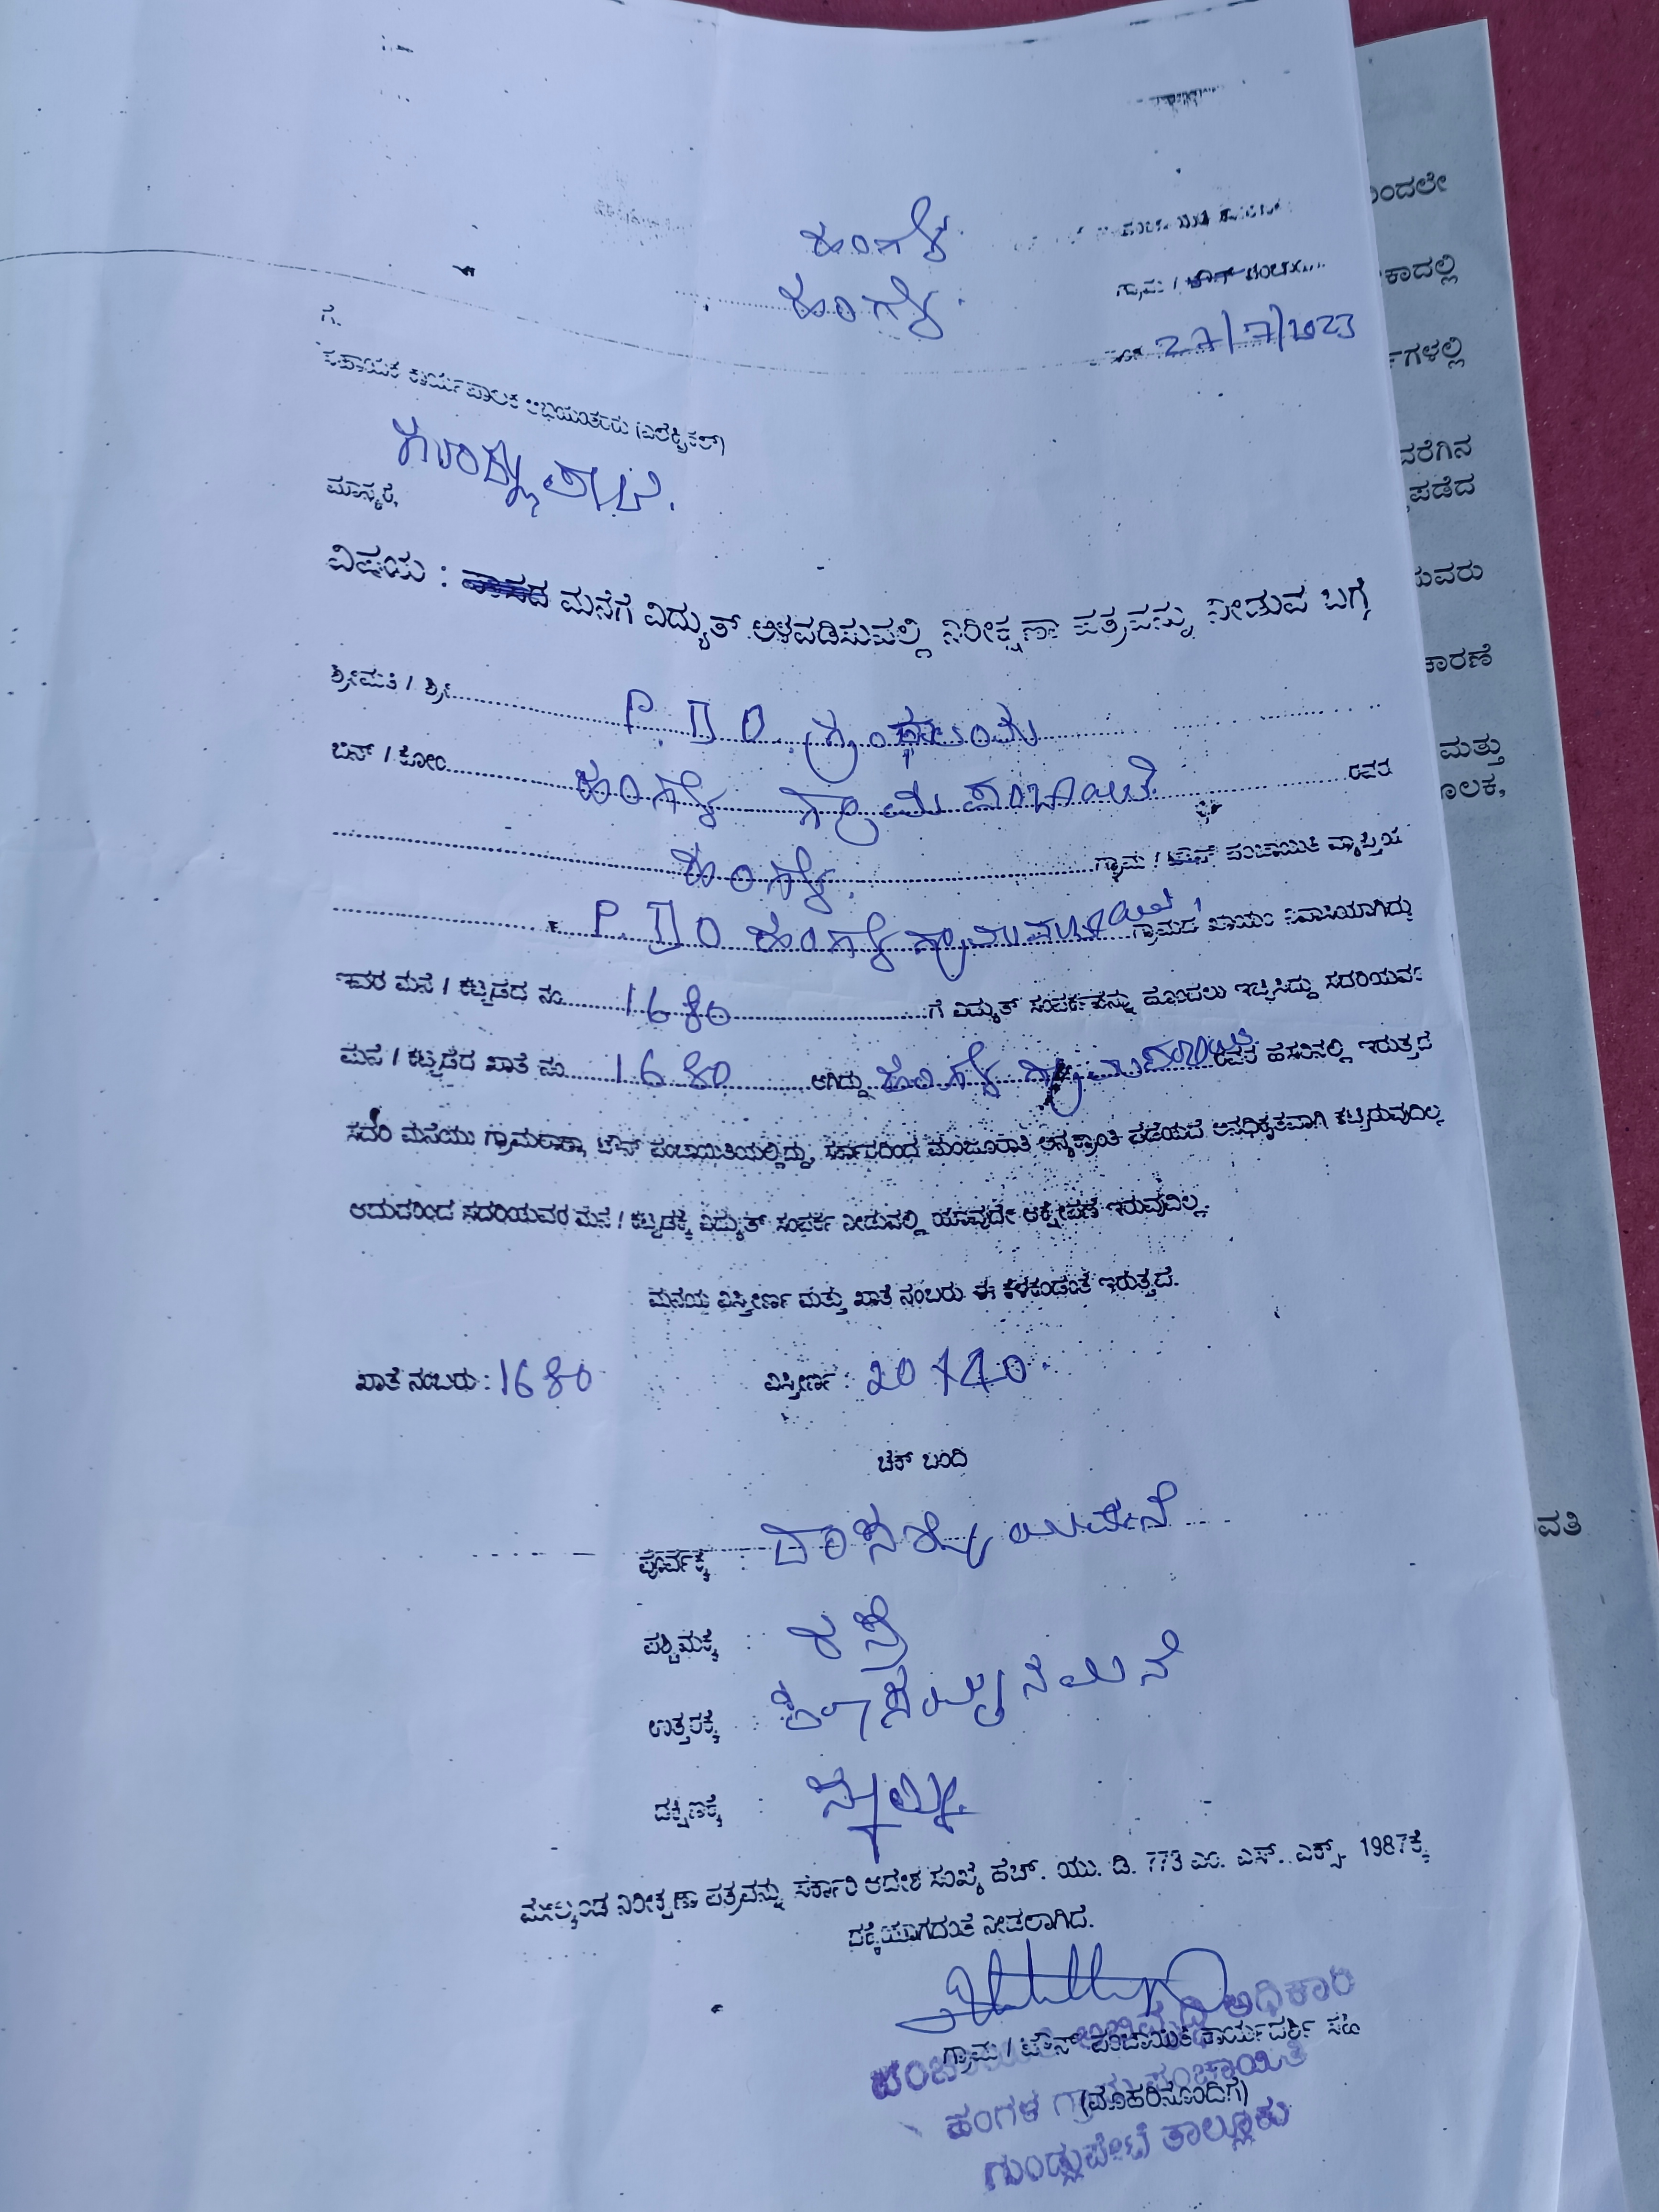 ಹಂಗಳ
ಹಂಗಳ
ಗ್ರಾಮ /
27/7/2023
ಗೆ.
ಸಹಾಯಕ ಕಾರ್ಯಪಾಲಕ ಅಭಿಯಂತರರು (ಎಲೆಕ್ಟ್ರಿಕಲ್)
ಗುಂಡ್ಲುಪೇಟೆ.
ಮಾನ್ಯರೆ,
ವಿಷಯ : ಮನೆಗೆ ವಿದ್ಯುತ್ ಅಳವಡಿಸುವಲ್ಲಿ ನಿರೀಕ್ಷಣಾ ಪತ್ರವನ್ನು ನೀಡುವ ಬಗ್ಗೆ
ಶ್ರೀಮತಿ / ಶ್ರೀ P.D.O. ಗ್ರಂಥಾಲಯ
ಬಿನ್ / ಕೋಂ ಹಂಗಳ ಗ್ರಾಮ ಪಂಚಾಯಿತಿ ರವರ
ಹಂಗಳ. ಗ್ರಾಮ / ಟೌನ್ ಪಂಚಾಯಿತಿ ವ್ಯಾಪ್ತಿಯ
P.D.O ಹಂಗಳ ಗ್ರಾಮ ಪಂಚಾಯಿತಿ ಗ್ರಾಮದ ಖಾಯಂ ನಿವಾಸಿಯಾಗಿದ್ದು
ಇವರ ಮನೆ / ಕಟ್ಟಡದ ನಂ. 1680 ಗೆ ವಿದ್ಯುತ್ ಸಂಪರ್ಕವನ್ನು ಹೊಂದಲು ಇಚ್ಛಿಸಿದ್ದು ಸದರಿಯವರ
ಮನೆ / ಕಟ್ಟಡದ ಖಾತೆ ನಂ. 1680 ಆಗಿದ್ದು ಹಂಗಳ ಗ್ರಾಮ ಪಂಚಾಯಿತಿ ರವರ ಹೆಸರಿನಲ್ಲಿ ಇರುತ್ತದೆ
ಸದರಿ ಮನೆಯು ಗ್ರಾಮಠಾಣಾ, ಟೌನ್ ಪಂಚಾಯಿತಿಯಲ್ಲಿದ್ದು, ಸರ್ಕಾರದಿಂದ ಮಂಜೂರಾತಿ ಅನ್ಯಕ್ರಾಂತಿ ಪಡೆಯದೆ ಅನಧಿಕೃತವಾಗಿ ಕಟ್ಟಿರುವುದಿಲ್ಲ
ಆದುದರಿಂದ ಸದರಿಯವರ ಮನೆ / ಕಟ್ಟಡಕ್ಕೆ ವಿದ್ಯುತ್ ಸಂಪರ್ಕ ನೀಡುವಲ್ಲಿ ಯಾವುದೇ ಆಕ್ಷೇಪಣೆ ಇರುವುದಿಲ್ಲ.
ಮನೆಯ ವಿಸ್ತೀರ್ಣ ಮತ್ತು ಖಾತೆ ನಂಬರು ಈ ಕೆಳಕಂಡಂತೆ ಇರುತ್ತದೆ.
ಖಾತೆ ನಂಬರು : 1680 ವಿಸ್ತೀರ್ಣ : 20x40.
ಚೆಕ್ ಬಂದಿ
ಪೂರ್ವಕ್ಕೆ :
ಪಶ್ಚಿಮಕ್ಕೆ : ರಸ್ತೆ
ಉತ್ತರಕ್ಕೆ :
ದಕ್ಷಿಣಕ್ಕೆ :
ಮೇಲ್ಕಂಡ ನಿರೀಕ್ಷಣಾ ಪತ್ರವನ್ನು ಸರ್ಕಾರಿ ಆದೇಶ ಸಂಖ್ಯೆ ಹೆಚ್. ಯು. ಡಿ. 773 ಎಂ. ಎಸ್. ಎಕ್ಸ್. 1987ಕ್ಕೆ
ದಕ್ಕೆಯಾಗದಂತೆ ನೀಡಲಾಗಿದೆ.
ಗ್ರಾಮ / ಟೌನ್ ಪಂಚಾಯಿತಿ ಕಾರ್ಯದರ್ಶಿ ಸಹಿ
(ಮೊಹರಿನೊಂದಿಗೆ)
ಪಂಚಾಯಿತಿ ಅಭಿವೃದ್ಧಿ ಅಧಿಕಾರಿ
ಹಂಗಳ ಗ್ರಾಮ ಪಂಚಾಯಿತಿ
ಗುಂಡ್ಲುಪೇಟೆ ತಾಲ್ಲೂಕು
ಮತ್ತು